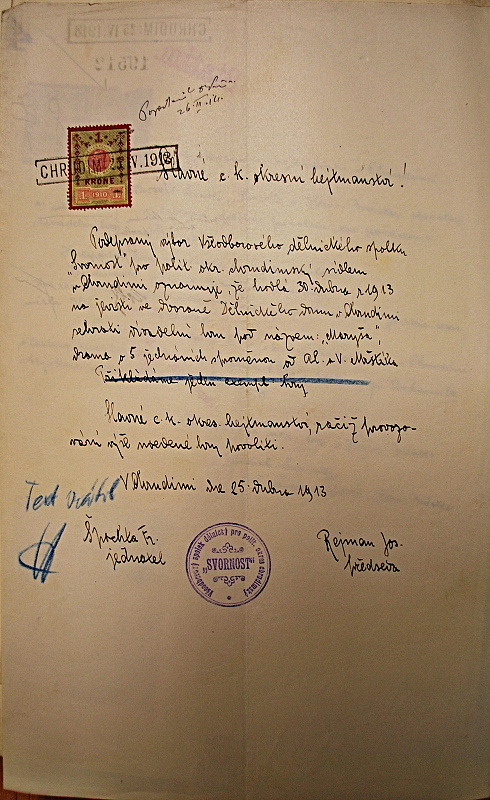 CHRUDIM 25 IV. 1913
1
KRONE
1910
Slavné c. k. okresní hejtmanství!
Podepsaný výbor Všeodborového dělnického spolku
"Svornost" pro polit. okr. chrudimský sídlem
v Chrudimi oznamuje, že hodlá 30. dubna r. 1913
na jevišti ve dvoraně Dělnického domu v Chrudimi
sehráti divadelní hru pod názvem: "Maryša",
drama o 5 jednáních od Al. a V. Mrštíků
Přikládáme jeden exempl. hry
Slavné c. k. okres. hejtmanství, račiž provozo-
vání výše uvedené hry povoliti.
V Chrudimi dne 25. dubna 1913
Text vrátil
Fr.
jednatel
Rejman Jos.
předseda
Všeodborový spolek dělnický pro polit. okres chrudimský
"SVORNOST"